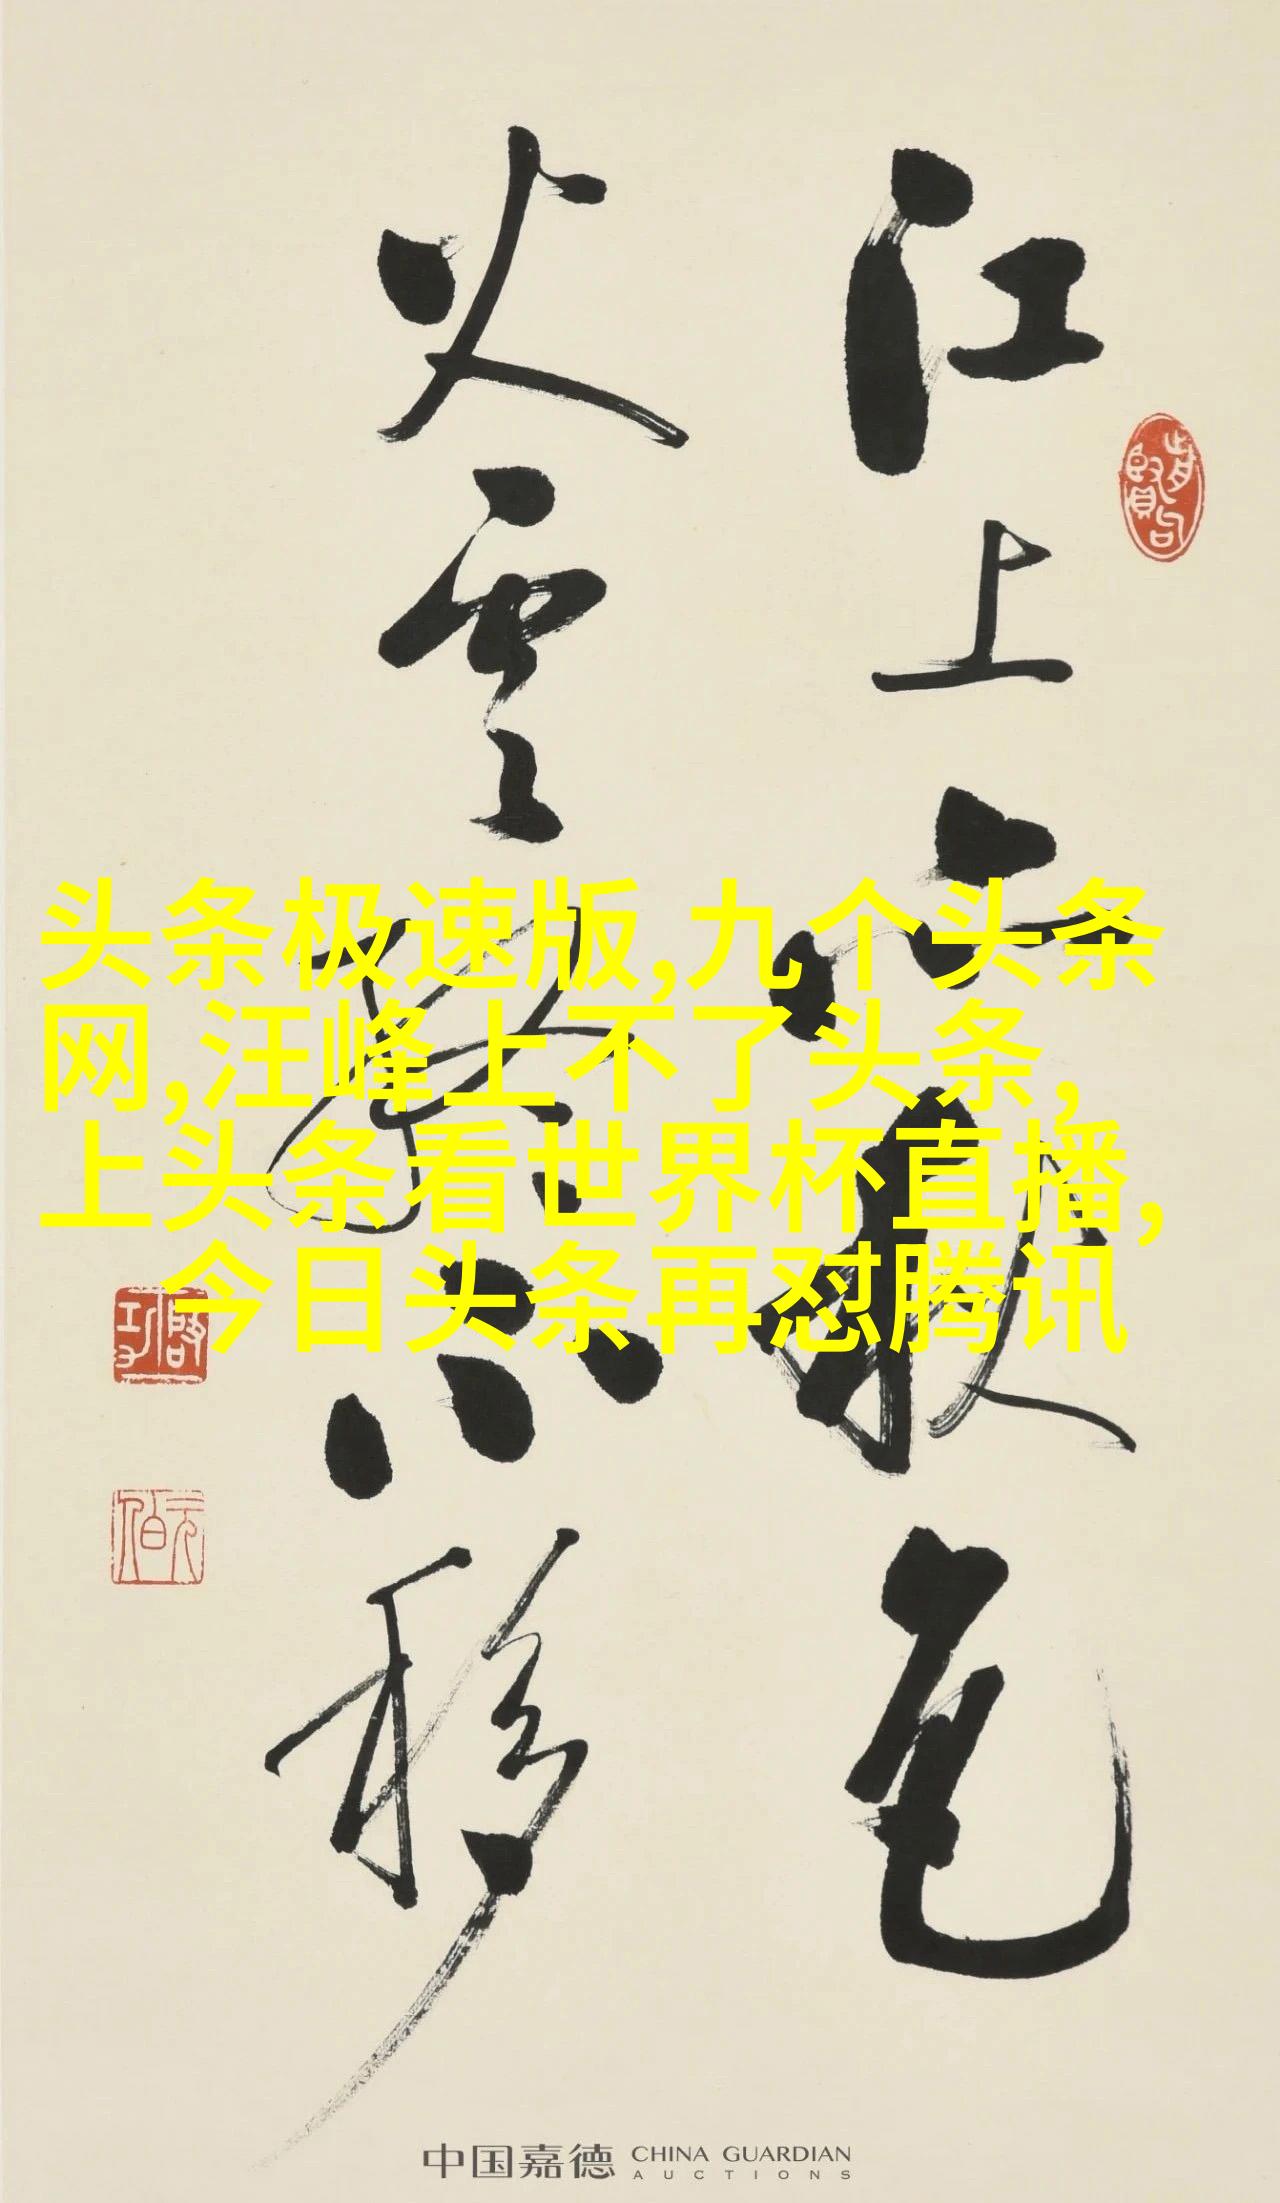 江上亦秋色
火雲終不移
头条极速版,九个头条
网,汪峰上不了头条,
上头条看世界杯直播,
今日头条再怼腾讯
啓功
元伯
中国嘉德 CHINA GUARDIAN
AUCTIONS